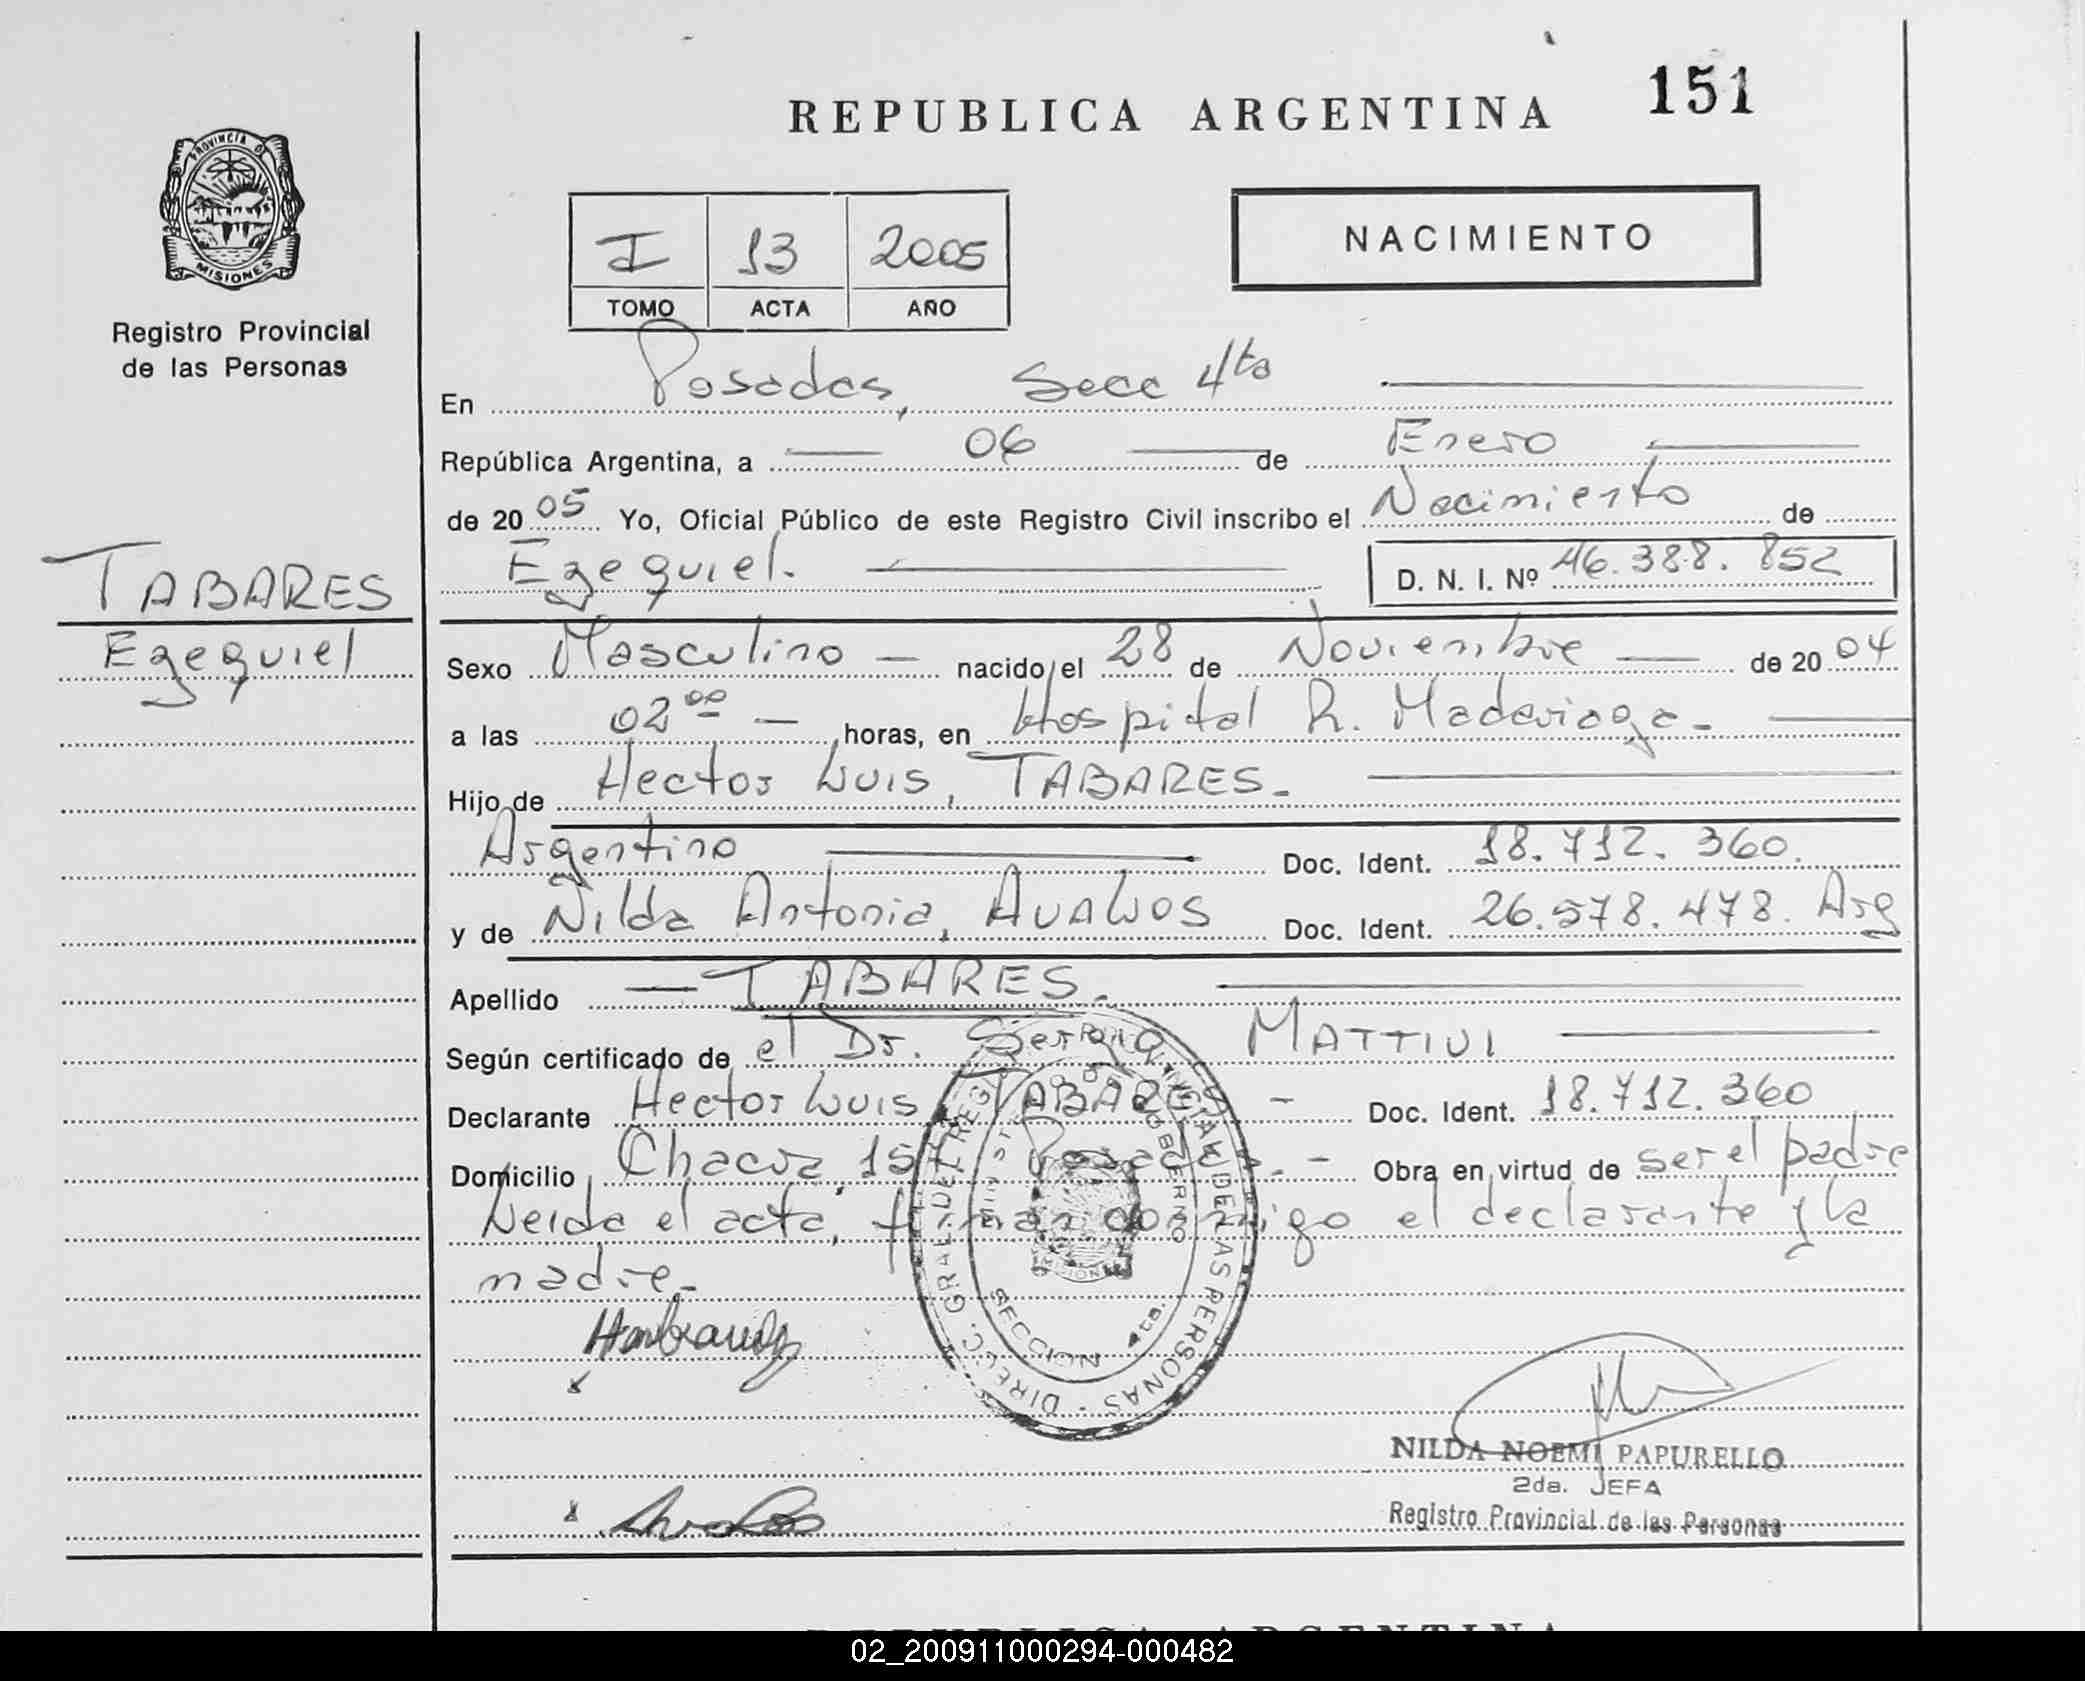 151
REPUBLICA ARGENTINA
PROVINCIA D
MISIONES
Registro Provincial
de las Personas
I 13 2005
TOMO ACTA AÑO
NACIMIENTO
En Posadas, Secc 4ta
República Argentina, a 06 de Enero
de 2005 Yo, Oficial Público de este Registro Civil inscribo el Nacimiento de
Ezequiel. D. N. I. Nº 46.388.852
TABARES
Ezequiel
Sexo Masculino nacido el 28 de Noviembre de 2004
a las 02 00 horas, en Hospital R. Madariaga.
Hijo de Hector Luis, TABARES.
Argentino Doc. Ident. 18.712.360.
y de Nilda Antonia, AVALOS Doc. Ident. 26.578.478. Arg
Apellido TABARES.
Según certificado de el Dr. Sergio MATTIVI
Declarante Hector Luis, TABARES - Doc. Ident. 18.712.360
Domicilio Chacra, Posadas. - Obra en virtud de ser el padre
Leida el acta, firman conmigo el declarante y la
madre.
DIRECC. GRAL. DEL REG. PROVINCIAL DE LAS PERSONAS
GOBIERNO
SECCION 4ta.
MISIONES
NILDA NOEMI PAPURELLO
2da. JEFA
Registro Provincial de las Personas
REPUBLICA ARGENTINA
02_200911000294-000482